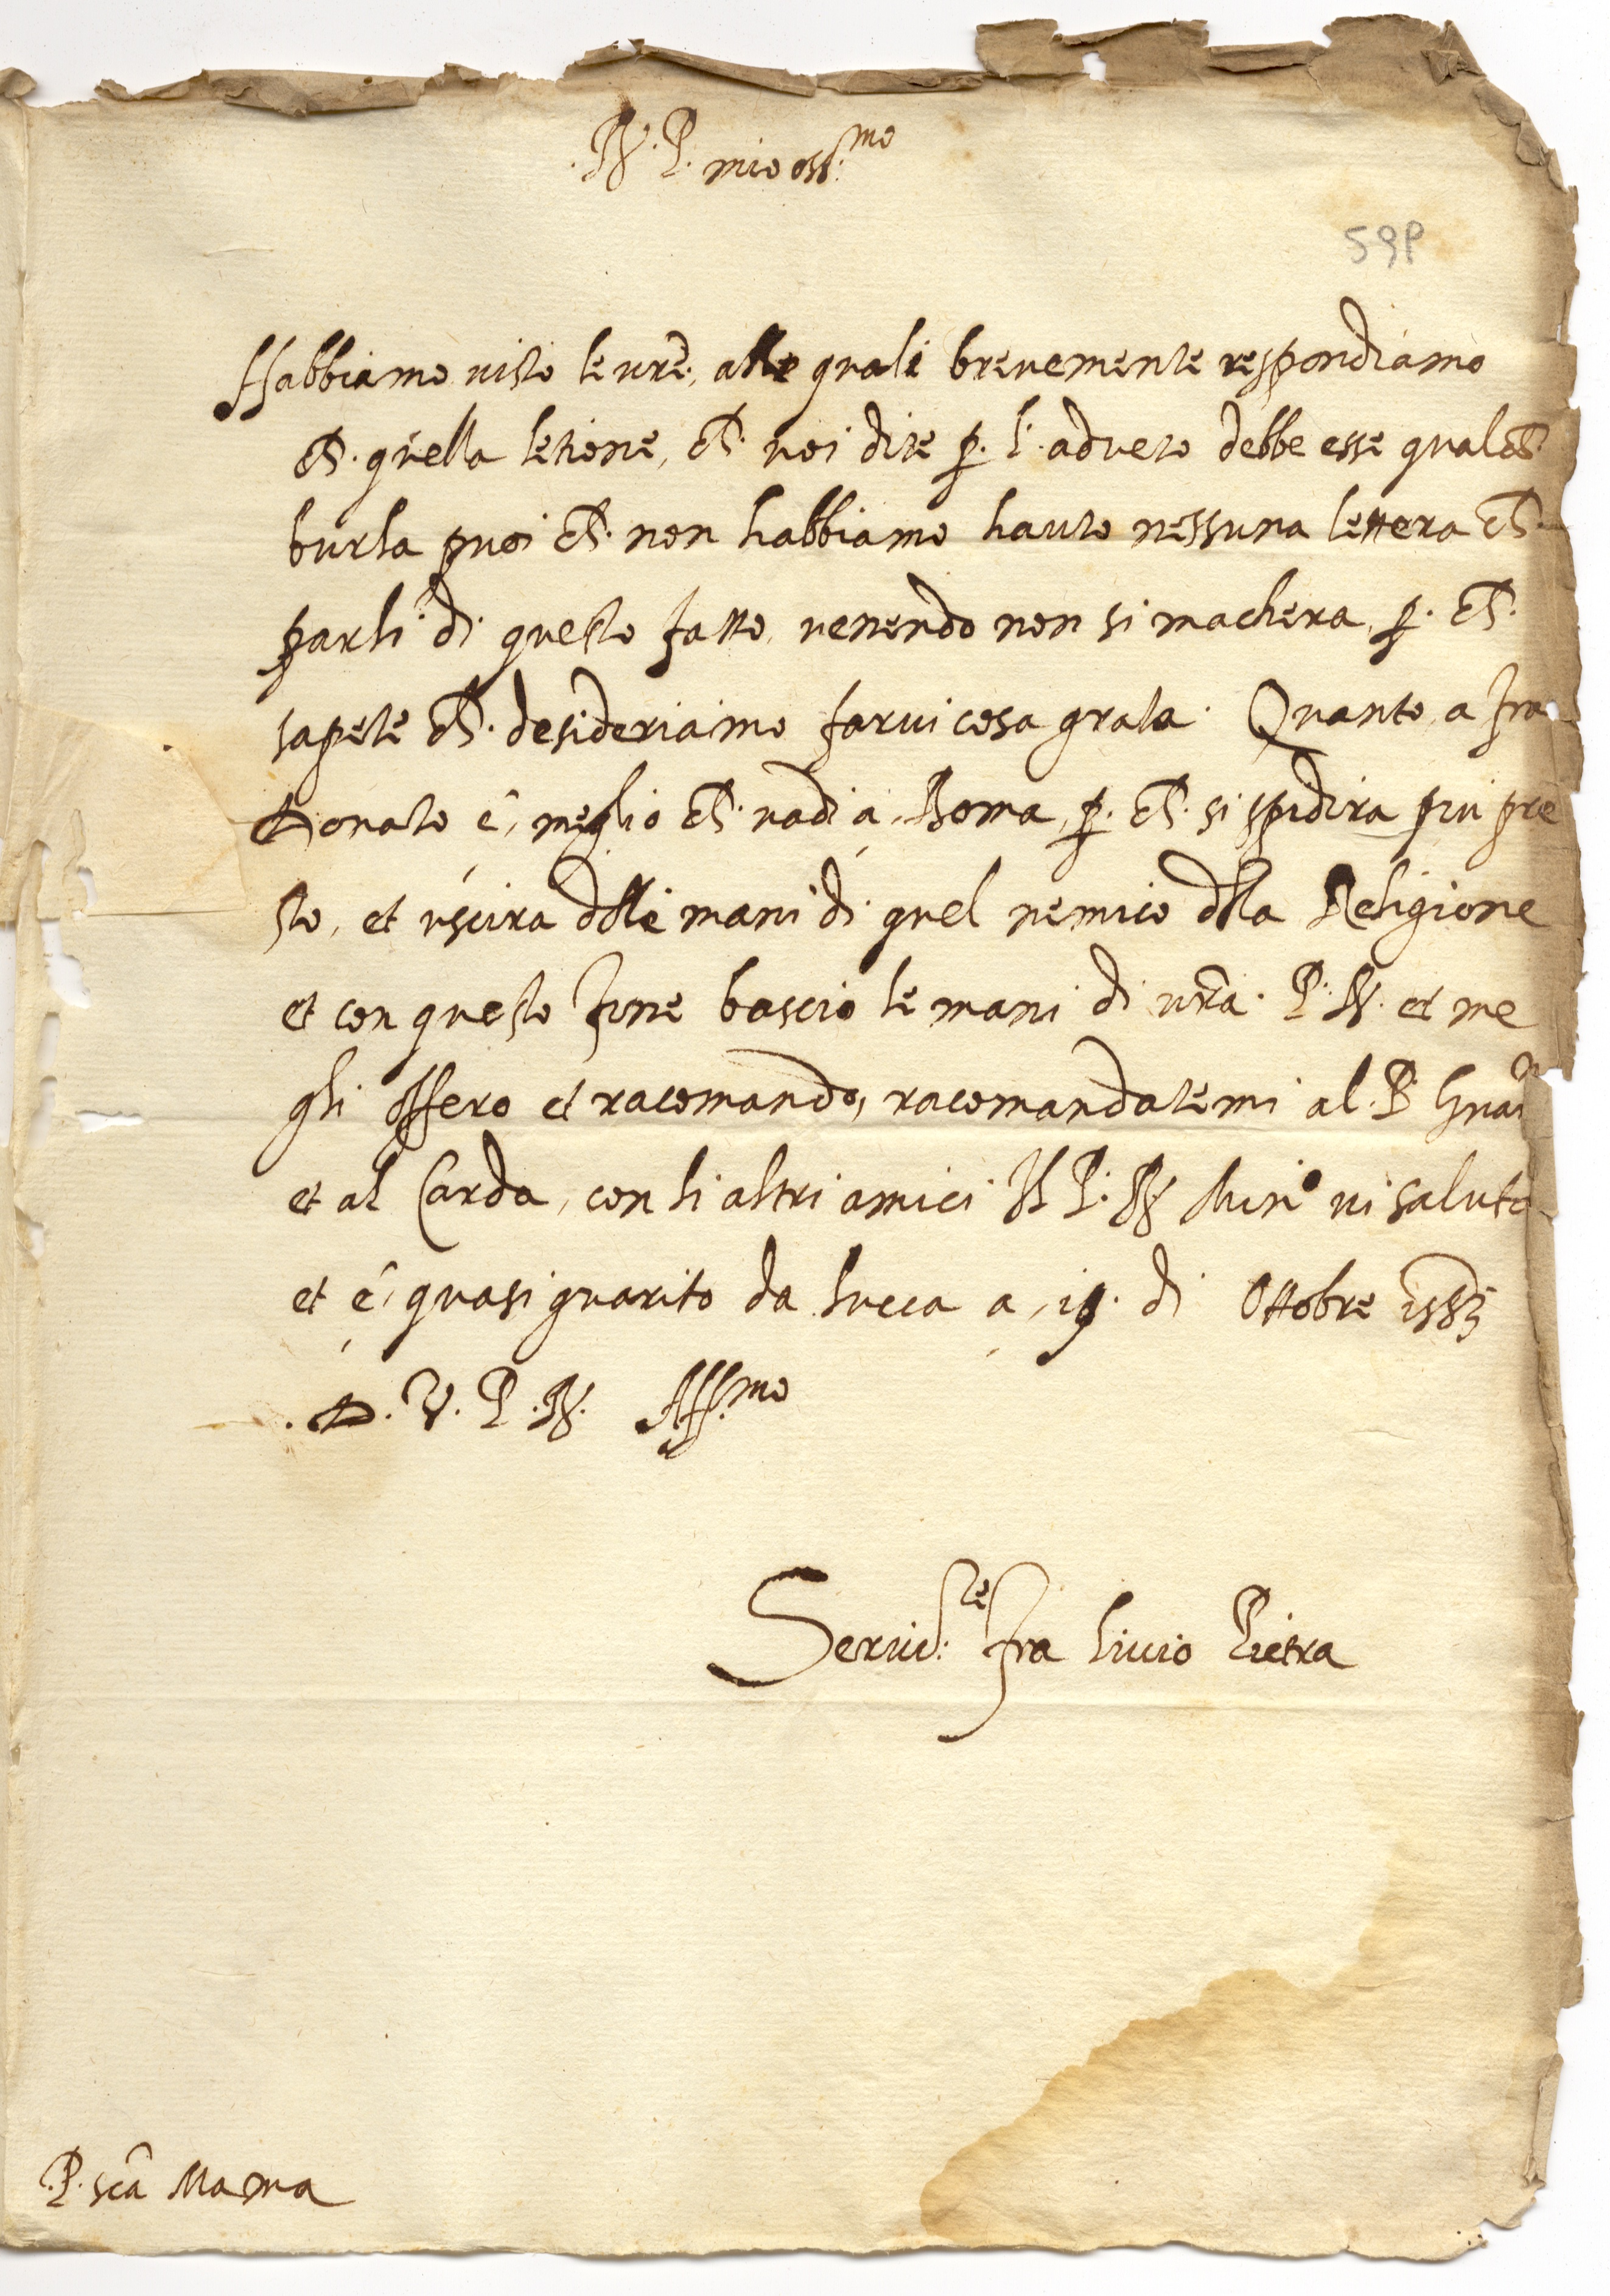 .R. P. mio oss.mo
59P
Habbiamo visto le vre, alle quali brevemente respondiamo
ch. quella letione, ch. voi dite p. l'adveto debbe esse qualch.
burla puoi ch. non habbiamo hauto nessuna lettera ch.
parli di questo fatto, venendo non si machera, p. ch.
sapete ch. desideriamo farvi cosa grata. Quanto a fra
Donato é, meglio ch. vadi à Roma, p. ch. si spidira piu pre
sto, et uscira dlle mani di quel nemico dlla Religione
et con questo fine bascio le mani di vra. P. R. et me
gli offero et racomando, racomandatemi al. P.
et al Carda, con li altri amici Il P. R. vi saluta
et é, quasi guarito da Lucca a, 19. di Ottobre 1583
.D. V. P. R. Aff.mo
Servid.re fra Livio Pietra
.P. sca Maria